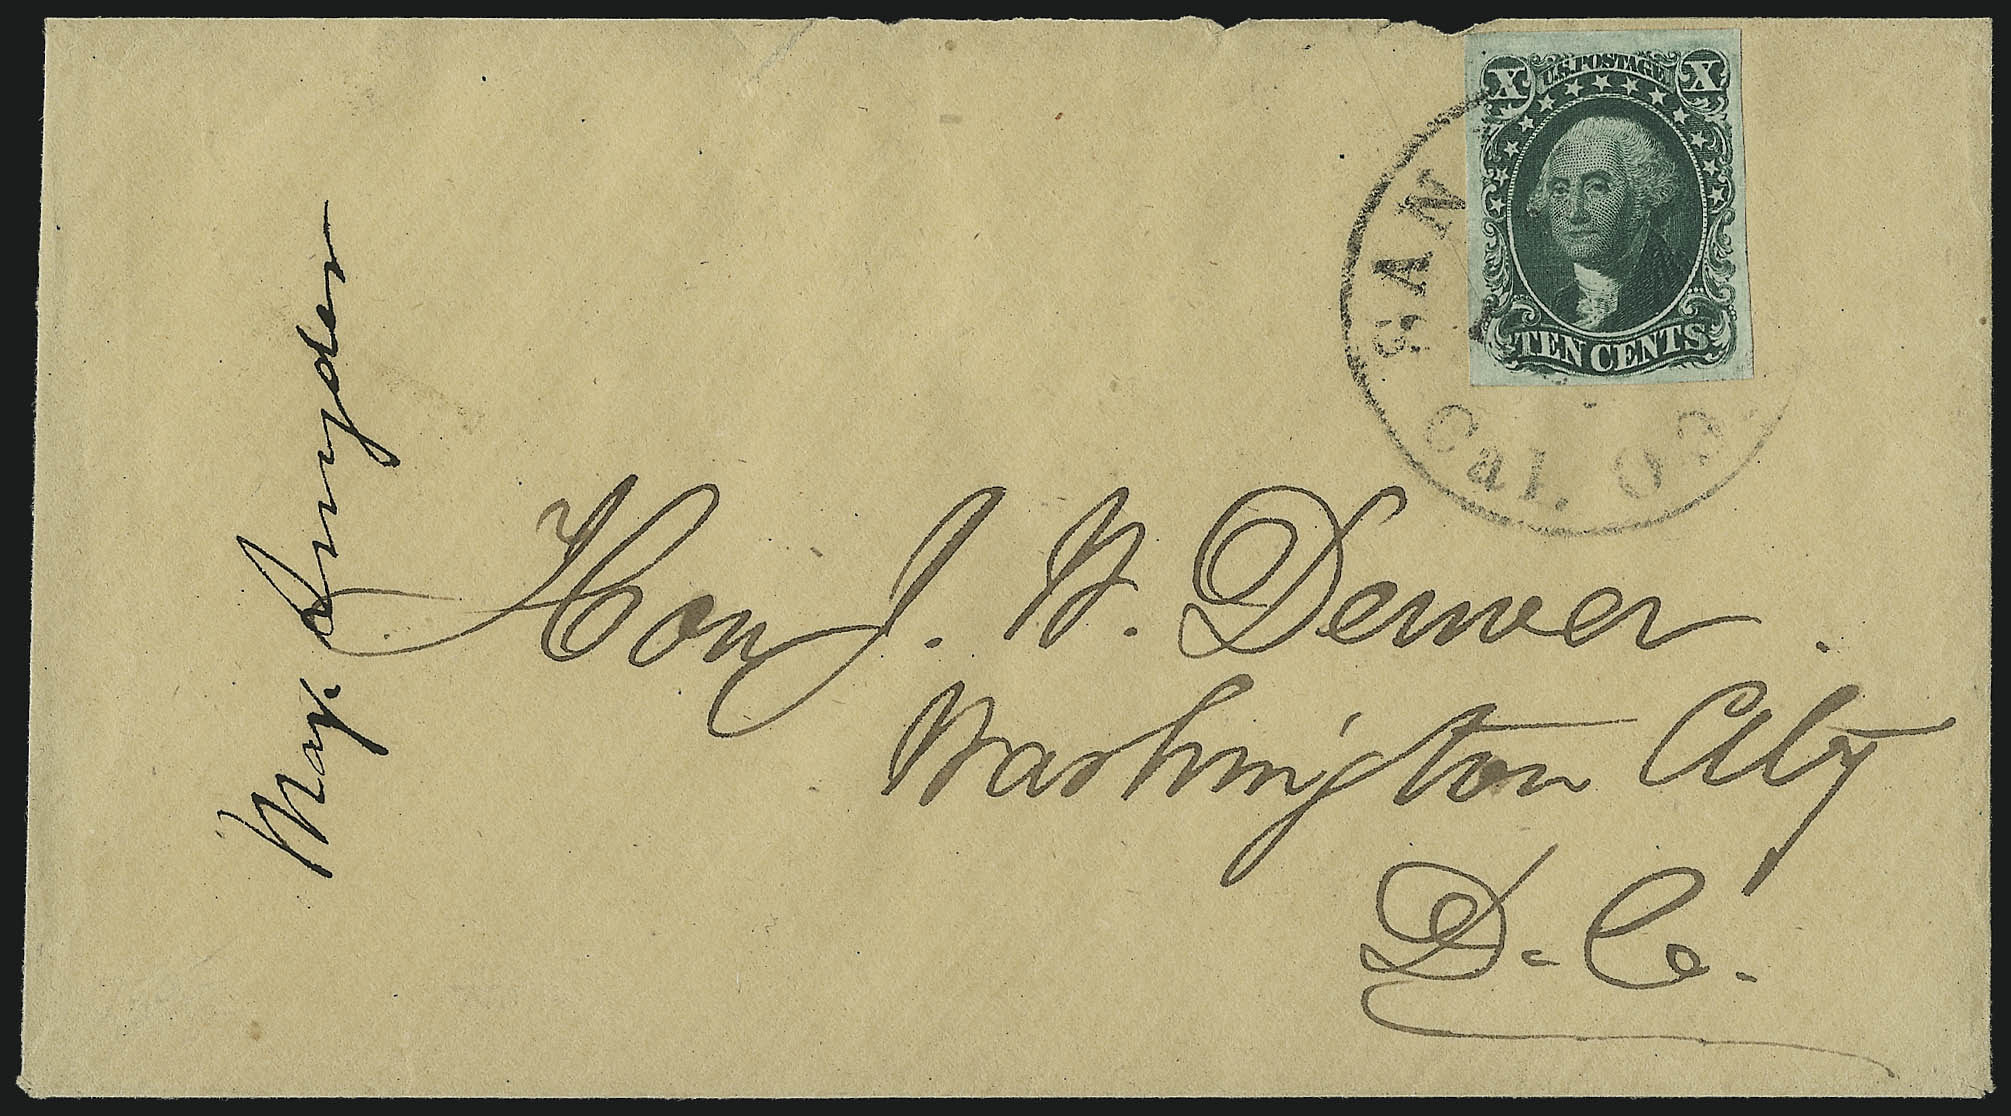 X U.S. POSTAGE X
TEN CENTS
SAN
Cal.
Hon J. W. Denver.
Washington City
D. C.
Maj. Snyder